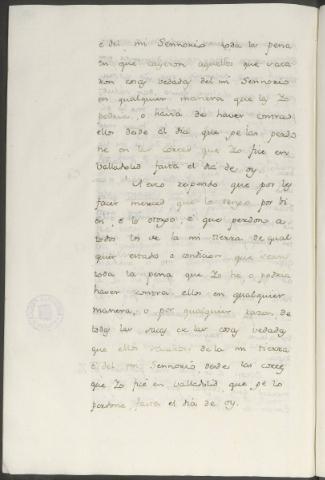 e del mi Sennorio toda la pena
en que cayeron aquellos que saca
ron cosas vedadas del mi Sennorio
en qualquier manera que la Yo
podria, o havia de haver contra
ellos desde el dia que ge las perdo
ne en las cortes que Yo fice en
Valladolid fasta el dia de oy.
A esto respondo que por les
facer merced que lo tengo por bi
en, e lo otorgo, e que perdono a
todos los de la mi tierra de qual
quier estado o condicion que sean
toda la pena que Yo he, o podria
haver contra ellos en qualquier
manera, o por qualquier razon de
todas las sacas de las cosas vedadas
que ellos sacaron de la mi tierra
e del mi Sennorio desde las cortes
que Yo fice en Valladolid que ge lo
perdone fasta el dia de oy.